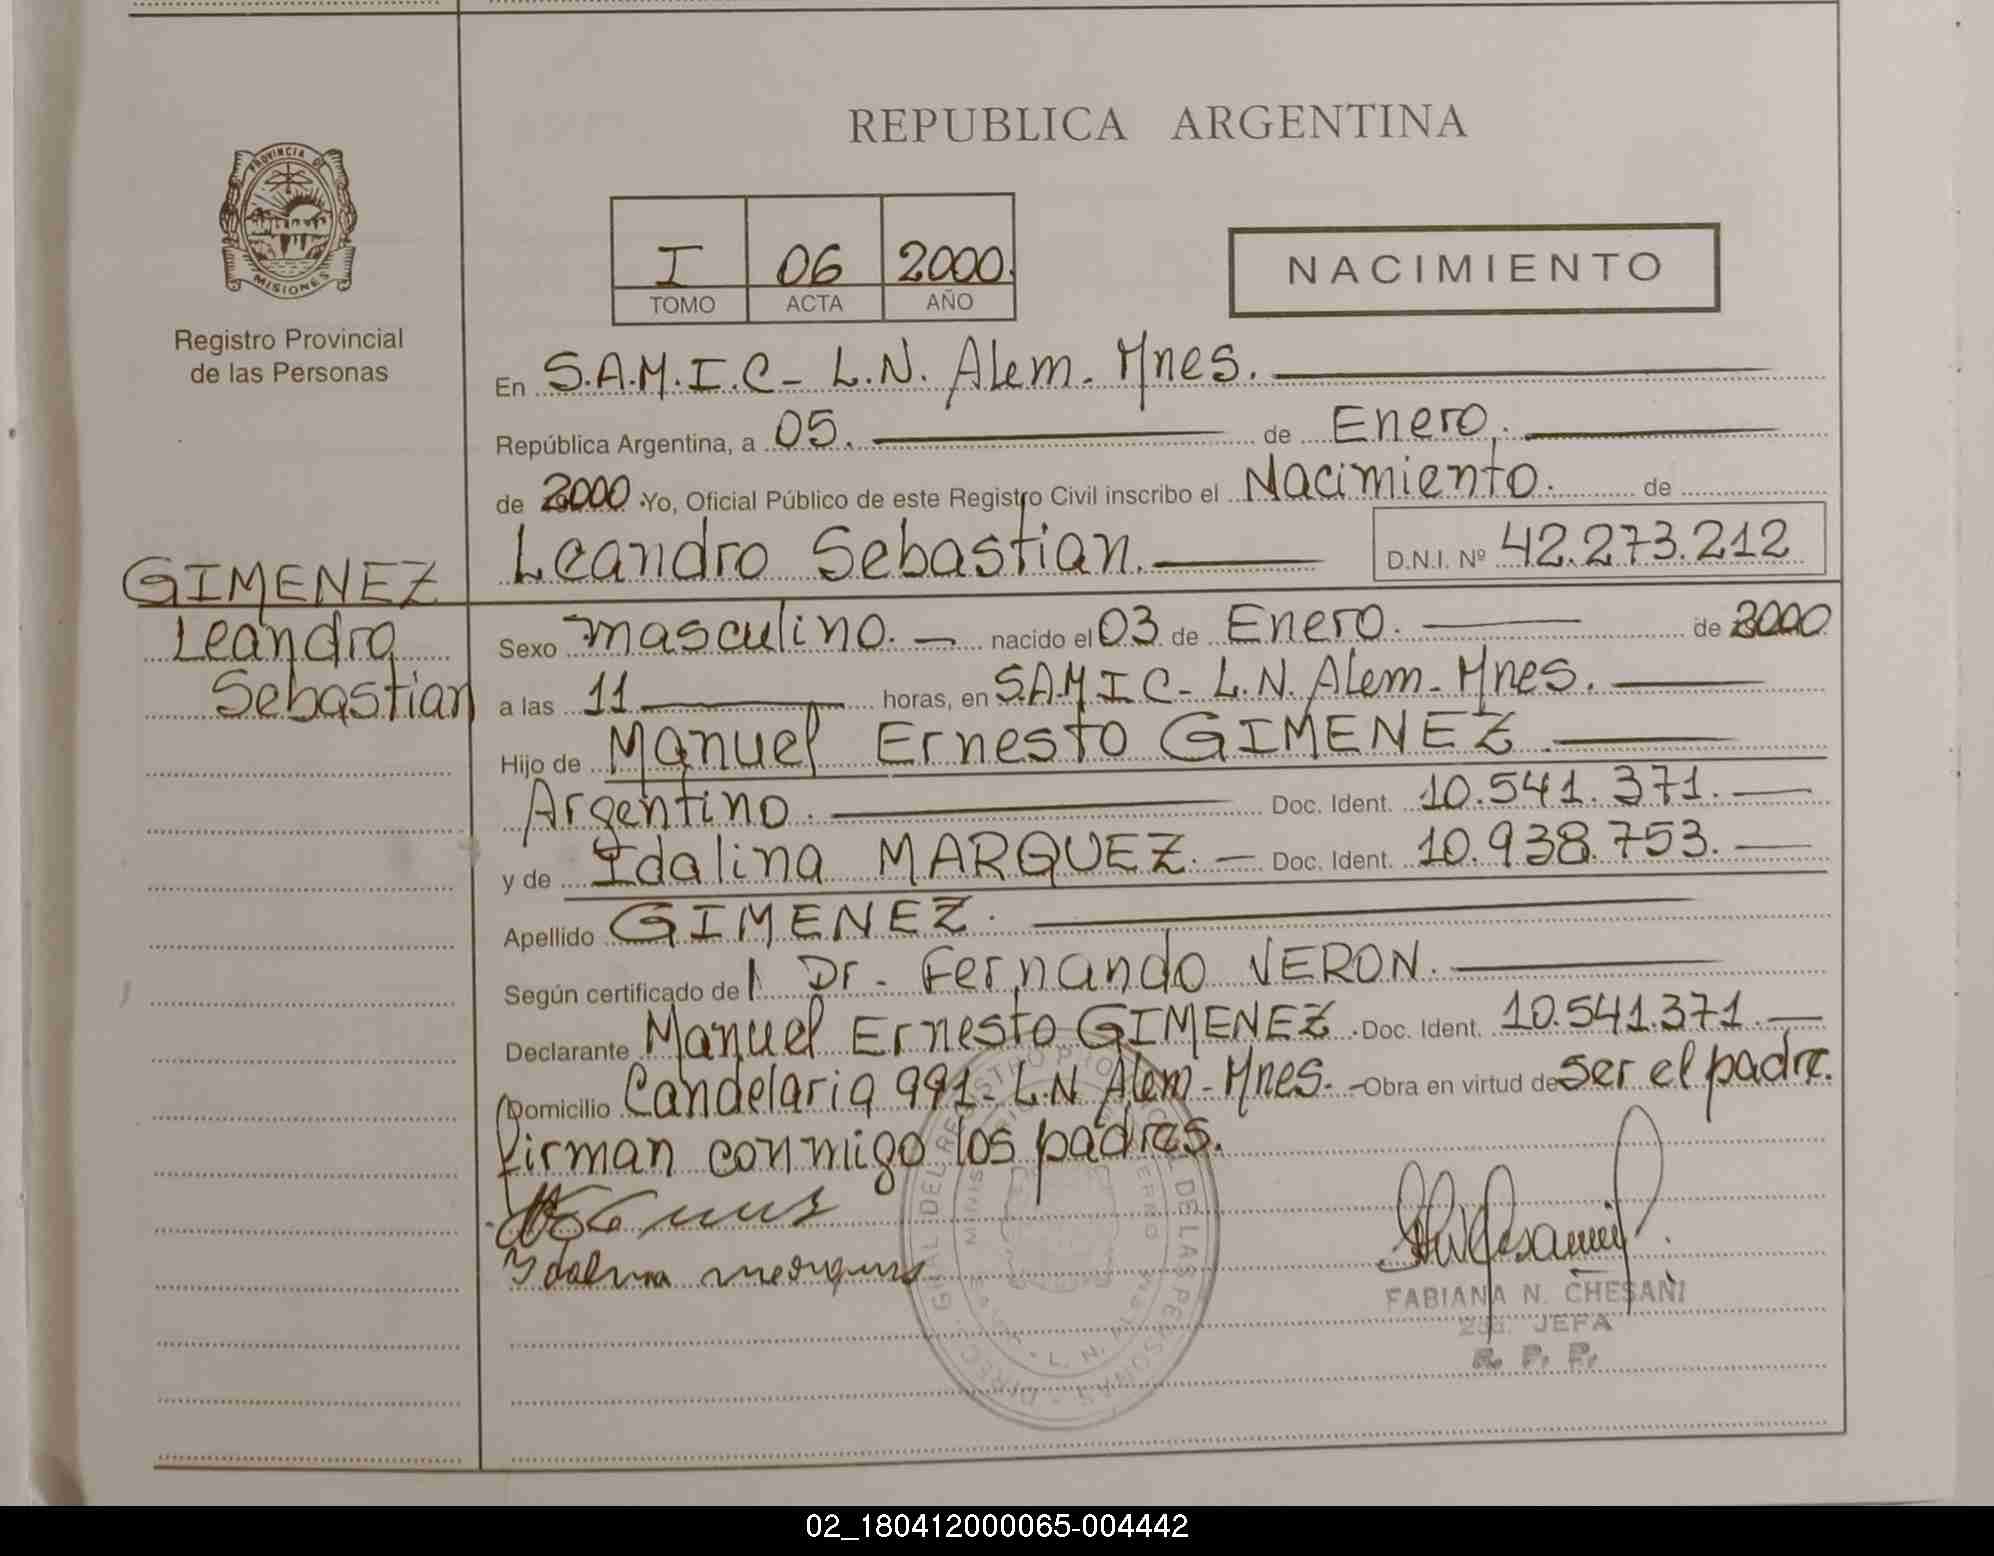 REPUBLICA ARGENTINA
PROVINCIA DE
MISIONES
Registro Provincial
de las Personas
I 06 2000
TOMO ACTA AÑO
NACIMIENTO
En S.A.M.I.C- L.N. Alem- Mnes.
República Argentina, a 05. de Enero.
de 2000 Yo, Oficial Público de este Registro Civil inscribo el Nacimiento. de
Leandro Sebastian. D.N.I. Nº 42.273.212
GIMENEZ
Leandro
Sebastian
Sexo masculino. nacido el 03 de Enero. de 2000
a las 11 horas, en S.A.M.I.C- L.N. Alem- Mnes.
Hijo de Manuel Ernesto GIMENEZ.
Argentino. Doc. Ident. 10.541.371.
y de Idalina MARQUEZ. Doc. Ident. 10.938.753.
Apellido GIMENEZ.
Según certificado de l Dr- Fernando VERON.
Declarante Manuel Ernesto GIMENEZ. Doc. Ident. 10.541.371.
Domicilio Candelaria 991- L.N Alem- Mnes. Obra en virtud de ser el padre.
firman conmigo los padres.
Ydalina
FABIANA N. CHESANI
JEFA
R. P. P.
02_180412000065-004442